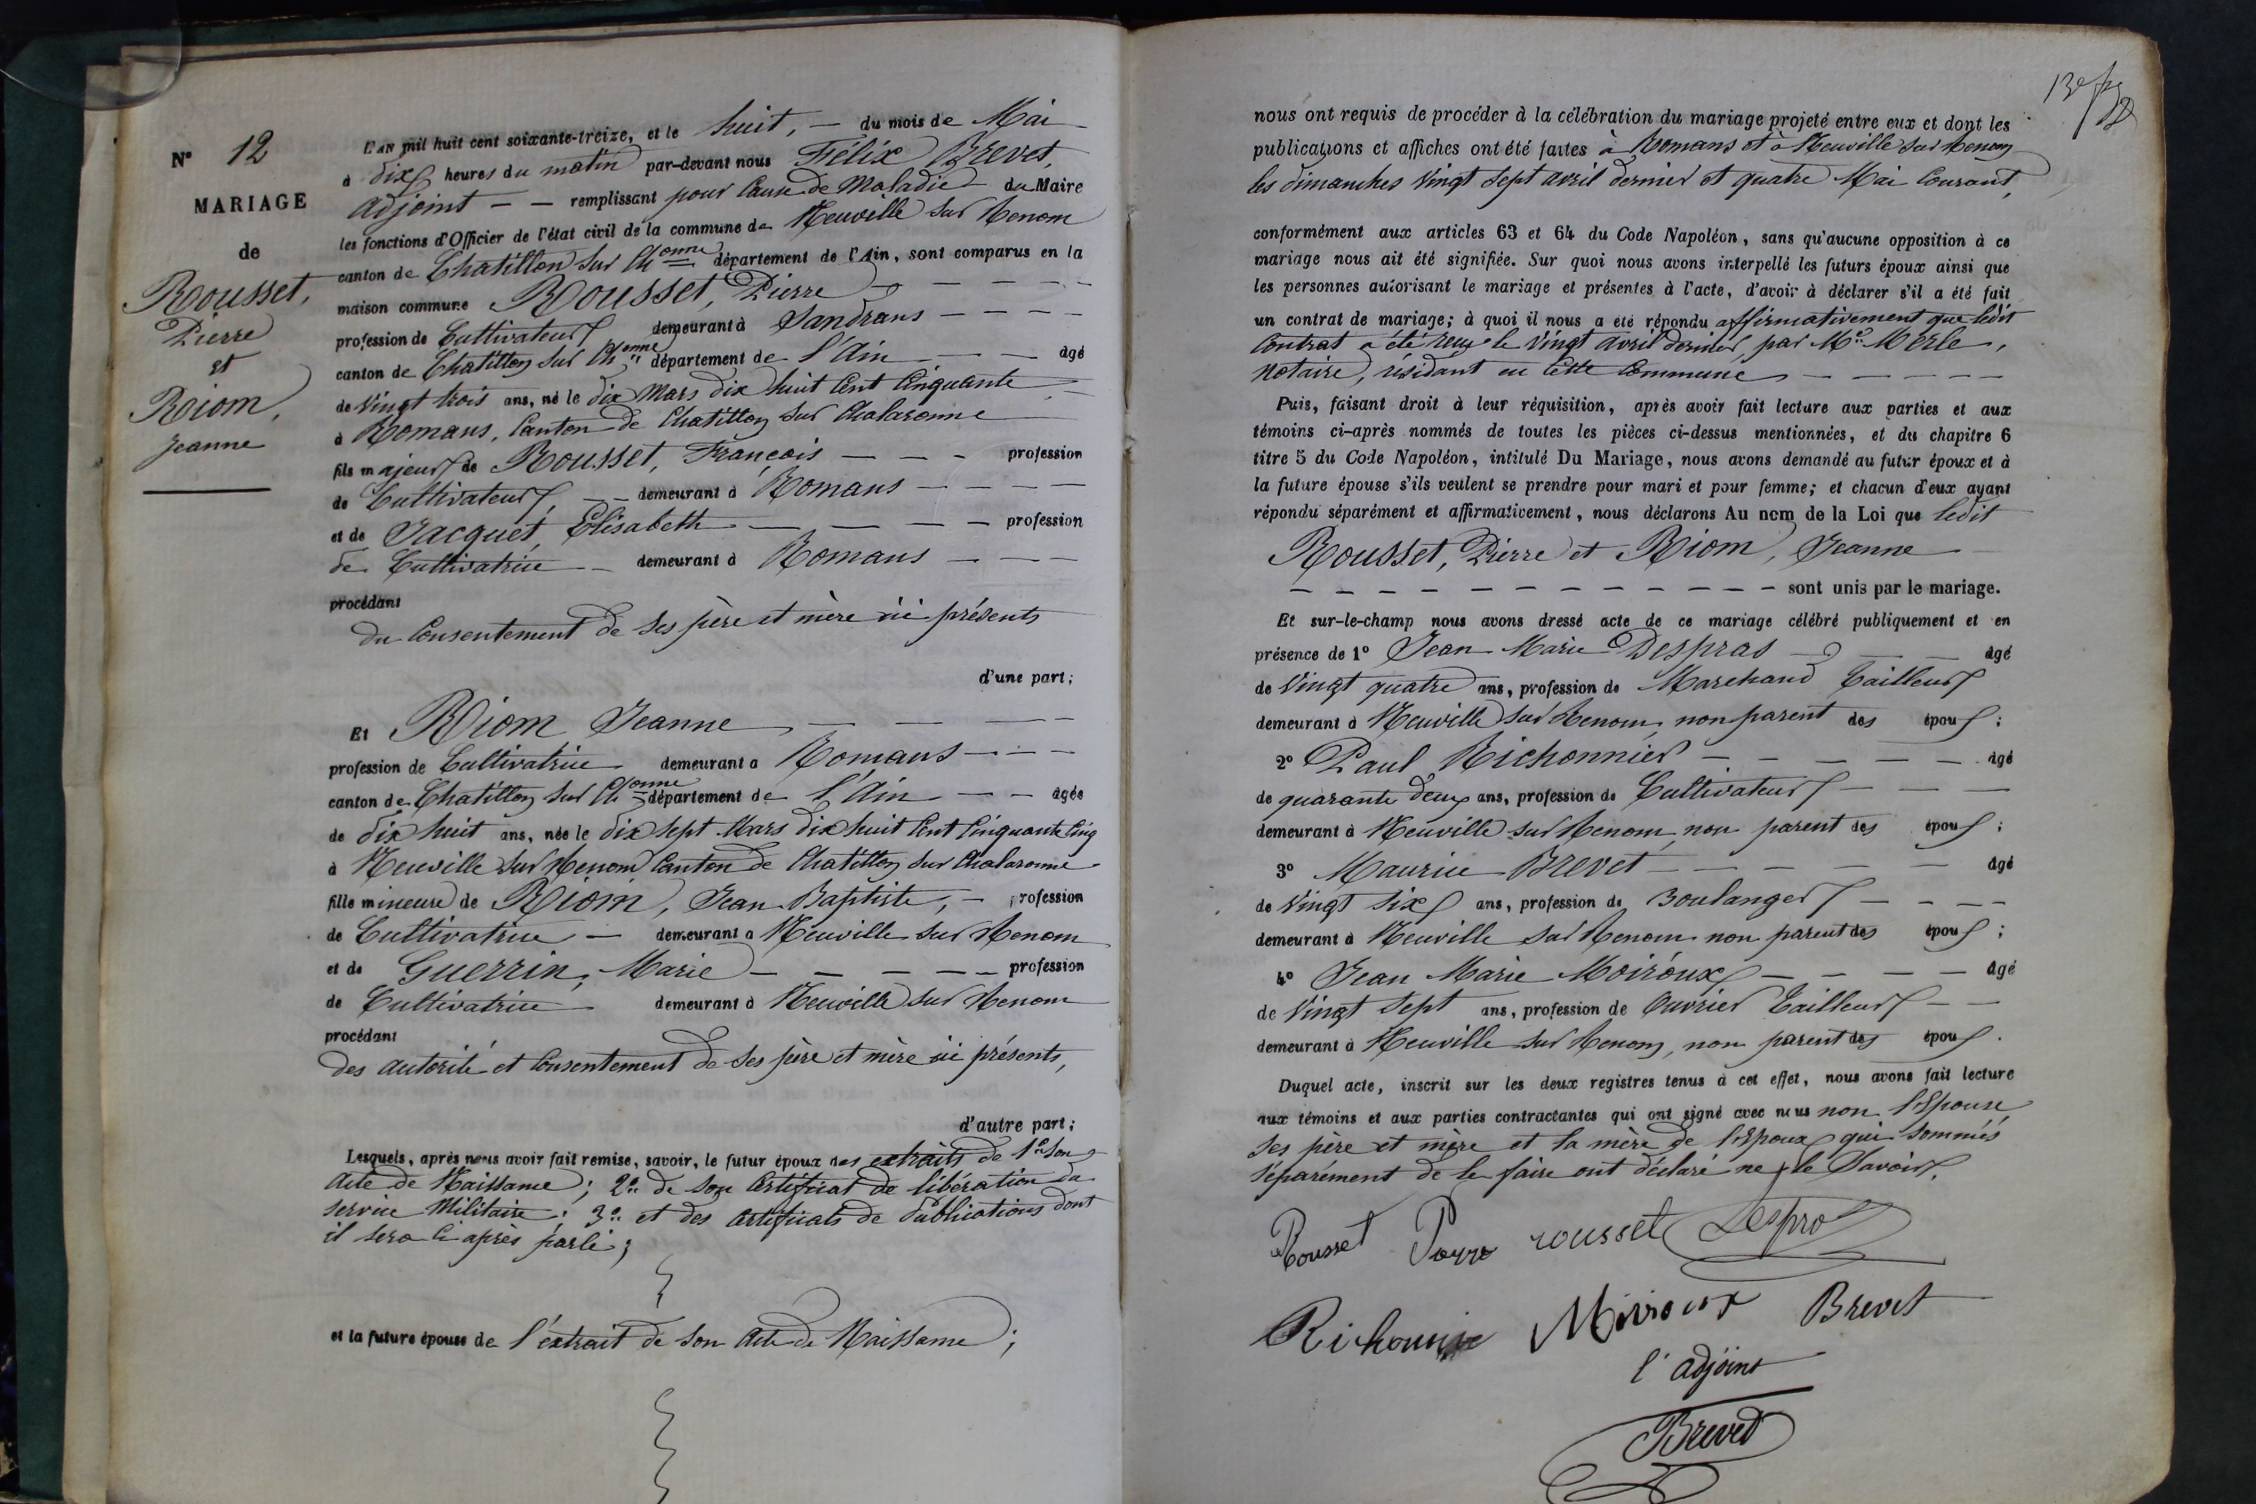 N° 12
MARIAGE
de
Rousset,
Pierre
et
Riom,
Jeanne
L'an mil huit cent soixante-treize, et le huit, — du mois de Mai
à dix heures du matin par-devant nous Félix Brevet,
adjoint — — remplissant pour cause de Maladie du Maire
les fonctions d'Officier de l'état civil de la commune de Neuville sur Renom
canton de Chatillon sur Ch^onne département de l'Ain, sont comparus en la
maison commune Rousset, Pierre — — — —
profession de Cultivateur demeurant à Sandrans — — — —
canton de Chatillon sur Ch^onne département de l'Ain — — âgé
de vingt trois ans, né le dix Mars dix huit cent cinquante —
à Romans, Canton de Chatillon sur Chalaronne
fils majeur de Rousset, François — — — profession
de Cultivateur, — — demeurant à Romans — — — —
et de Jacquet, Elisabeth — — — — profession
de Cultivatrice — demeurant à Romans — — —
procédant
du Consentement de ses père et mère ici présents
d'une part;
Et Riom Jeanne — — — —
profession de Cultivatrice demeurant à Romans — — —
canton de Chatillon sur Ch^onne département de l'Ain — — âgée
de dix huit ans, née le dix sept Mars dix huit cent cinquante cinq
à Neuville sur Renom Canton de Chatillon sur Chalaronne
fille mineure de Riom, Jean Baptiste, — profession
de Cultivatrice — demeurant à Neuville sur Renom
et de Guerrin, Marie — — — — — profession
de Cultivatrice demeurant à Neuville sur Renom
procédant
des autorité et consentement de ses père et mère ici présents,
d'autre part;
Lesquels, après nous avoir fait remise, savoir, le futur époux des extraits de 1° son
acte de Naissance; 2° de son Certificat de libération du
service Militaire; 3° et des certificats de publications dont
il sera ci après parlé;
et la future épouse de l'extrait de son acte de Naissance;
nous ont requis de procéder à la célébration du mariage projeté entre eux et dont les
publications et affiches ont été faites à Romans et à Neuville sur Renom
les dimanches vingt sept avril dernier et quatre Mai Courant,
conformément aux articles 63 et 64 du Code Napoléon, sans qu'aucune opposition à ce
mariage nous ait été signifiée. Sur quoi nous avons interpellé les futurs époux ainsi que
les personnes autorisant le mariage et présentes à l'acte, d'avoir à déclarer s'il a été fait
un contrat de mariage; à quoi il nous a été répondu affirmativement que ledit
Contrat a été reçu le vingt avril dernier, par M^e Merle,
Notaire, résidant en cette Commune — — — — —
Puis, faisant droit à leur réquisition, après avoir fait lecture aux parties et aux
témoins ci-après nommés de toutes les pièces ci-dessus mentionnées, et du chapitre 6
titre 5 du Code Napoléon, intitulé Du Mariage, nous avons demandé au futur époux et à
la future épouse s'ils veulent se prendre pour mari et pour femme; et chacun d'eux ayant
répondu séparément et affirmativement, nous déclarons Au nom de la Loi que ledit
Rousset, Pierre et Riom, Jeanne
— — — — — — — — — — — — sont unis par le mariage.
Et sur-le-champ nous avons dressé acte de ce mariage célébré publiquement et en
présence de 1° Jean Marie Despras — — — âgé
de vingt quatre ans, profession de Marchand Tailleur
demeurant à Neuville sur Renom, non parent des époux;
2° Paul Richonnier — — — — — âgé
de quarante deux ans, profession de Cultivateur — — —
demeurant à Neuville sur Renom, non parent des époux;
3° Maurice Brevet — — — — — âgé
de vingt six ans, profession de Boulanger — — — —
demeurant à Neuville sur Renom non parent des époux;
4° Jean Marie Moiroux — — — — âgé
de vingt sept ans, profession de Ouvrier Tailleur — —
demeurant à Neuville sur Renom, non parent des époux.
Duquel acte, inscrit sur les deux registres tenus à cet effet, nous avons fait lecture
aux témoins et aux parties contractantes qui ont signé avec nous non l'Epouse,
ses père et mère et la mère de l'Epoux qui sommés
séparément de le faire ont déclaré ne le savoir.
Rousset Pierre rousset Despra
Richonnie Moiroux Brevet
l'adjoint
Brevet